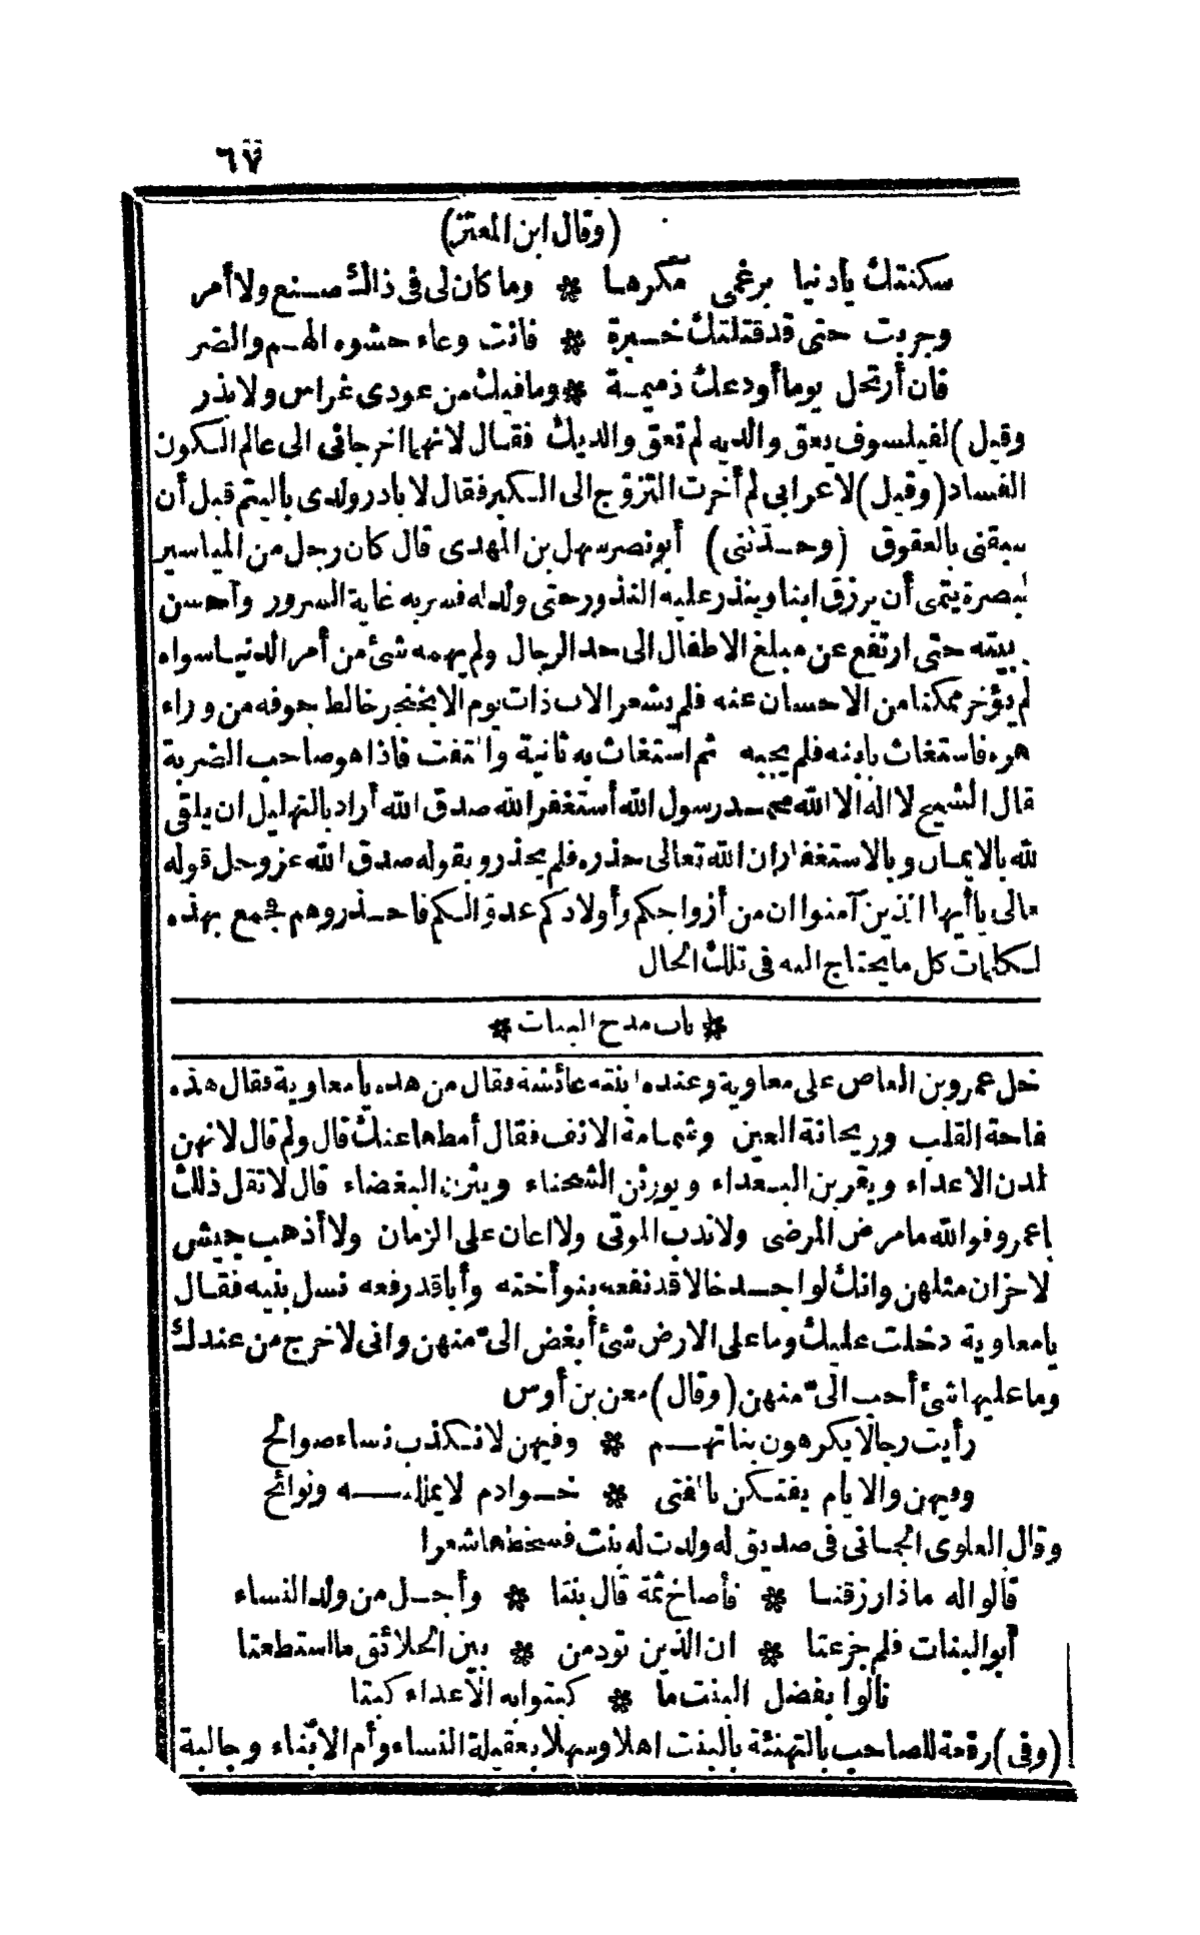 ٦٧
(وقال ابن المعتز)
سكنتك يادنيا برغمى مكرها * وما كان لى فى ذالك صنع ولا أمر
وجربت حتى قد قتلتك خبرة * فانت وعاء حشوه الهم والضر
فان أرتحل يوما أودعك ذميمة * وما فيك من عودى غراس ولا بذر
وقيل) لفيلسوف يعق والديه لم تعق والديك فقال لانهما اخرجانى الى عالم الكون
الفساد (وقيل) لاعرابى لم أخرت التزوج الى الكبر فقال لا بادر ولدى باليتم قبل أن
سبقنى بالعقوق (وحدثنى) أبو نصر سهل بن المهدى قال كان رجل من المياسير
لبصرة يتمى أن يرزق ابنا وينذر عليه النذور حتى ولد له فسر به غاية السرور وأحسن
بيته حتى ارتفع عن مبلغ الاطفال الى حد الرجال ولم يهمه شئ من أمر الدنيا سواه
لم يؤخر ممكنا من الاحسان عنه فلم يشعر الاب ذات يوم الا بخنجر خالط جوفه من وراء
هره فاستغاث بابنه فلم يجبه ثم استغاث به ثانية والتفت فاذا هو صاحب الضربة
قال الشيخ لا اله الا الله محمد رسول الله أستغفر الله صدق الله أراد بالتهليل ان يلقى
لله بالايمان وبالاستغفار ان الله تعالى حذره فلم يحذر وبقوله صدق الله عز وجل قوله
عالى يا أيها الذين آمنوا ان من أزواجكم وأولادكم عدوّا لكم فاحذروهم فجمع بهذه
لكلمات كل ما يحتاج اليه فى تلك الحال
* باب مدح البنات *
خل عمرو بن العاص على معاوية وعنده ابنته عائشة فقال من هذه يا معاوية فقال هذه
فاحة القلب وريحانة العين وشمامة الانف فقال أمطها عنك قال ولم قال لانهن
لدن الاعداء ويقربن البعداء ويورثن الشحناء ويثرن البغضاء قال لا تقل ذلك
ياعمرو فوالله ما مرض المرضى ولا ندب الموتى ولا اعان على الزمان ولا أذهب جيش
لاحزان مثلهن وانك لواجد خالا قد نفعه بنو أخته وأبا قد رفعه نسل بنيه فقال
يا معاوية دخلت عليك وما على الارض شئ أبغض الىّ منهن وانى لاخرج من عندك
وما عليها شئ أحب الىّ منهن (وقال) معن بن أوس
رأيت رجالا يكرهون بناتهم * وفيهن لا تكذب نساء صوالح
وفيهن والايام يفتكن بالفتى * خوادم لا يمللنه ونوائح
وقال العلوى الجمانى فى صديق له ولدت له بنت فسخطها شعرا
قالوا له ماذا رزقنا * فأصاخ ثمة قال بنتا * وأجل من ولد النساء
أبو البنات فلم جزعتا * ان الذين تود من * بين الخلائق ما استطعتا
نالوا بفضل البنت ما * كبتوا به الاعداء كبتا
(وفى) رقعة للصاحب بالتهنئة بالبنت اهلا وسهلا بعقيلة النساء وأم الابناء وجالبة